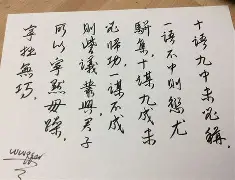 十語九中未必稱，
一語不中則愆尤
駢集十謀九成未
必歸功，一謀不成
則訾議叢興君子
所以寧默毋躁，
寧拙無巧，